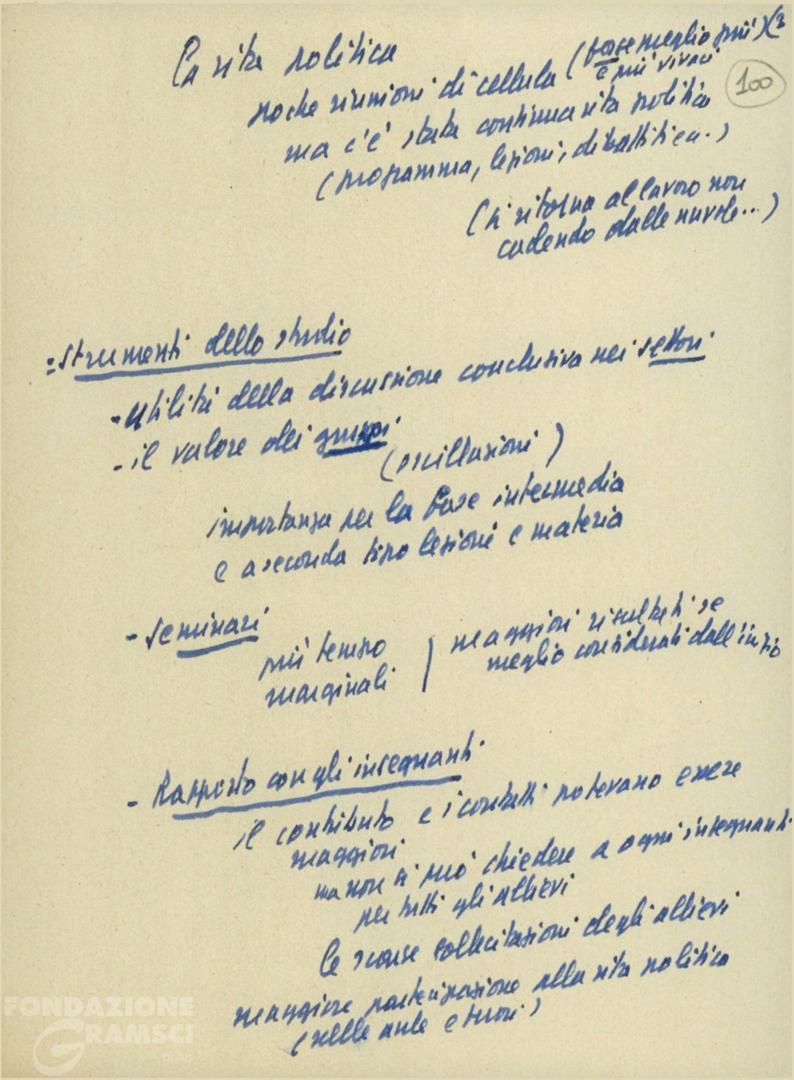 La vita politica
poche riunioni di cellula (forse meglio più) (3
e più vivaci
100
ma c'è stata continua vita politica
(programma, lezioni, dibattiti ecc.)
(si ritorna al lavoro non
cadendo dalle nuvole...)
- Strumenti dello studio
- Utilità della discussione conclusiva nei settori
- il valore dei gruppi
(oscillazioni)
importanza per la base intermedia
e a seconda tipo lezioni e materia
- Seminari
più tempo
marginali
maggiori risultati se
meglio considerati dall'inizio
- Rapporto con gli insegnanti
il contributo e i contatti potevano essere
maggiori
ma non si può chiedere a ogni insegnanti
per tutti gli allievi
le scarse sollecitazioni degli allievi
maggiore partecipazione alla vita politica
(nelle aule e fuori)
FONDAZIONE
GRAMSCI